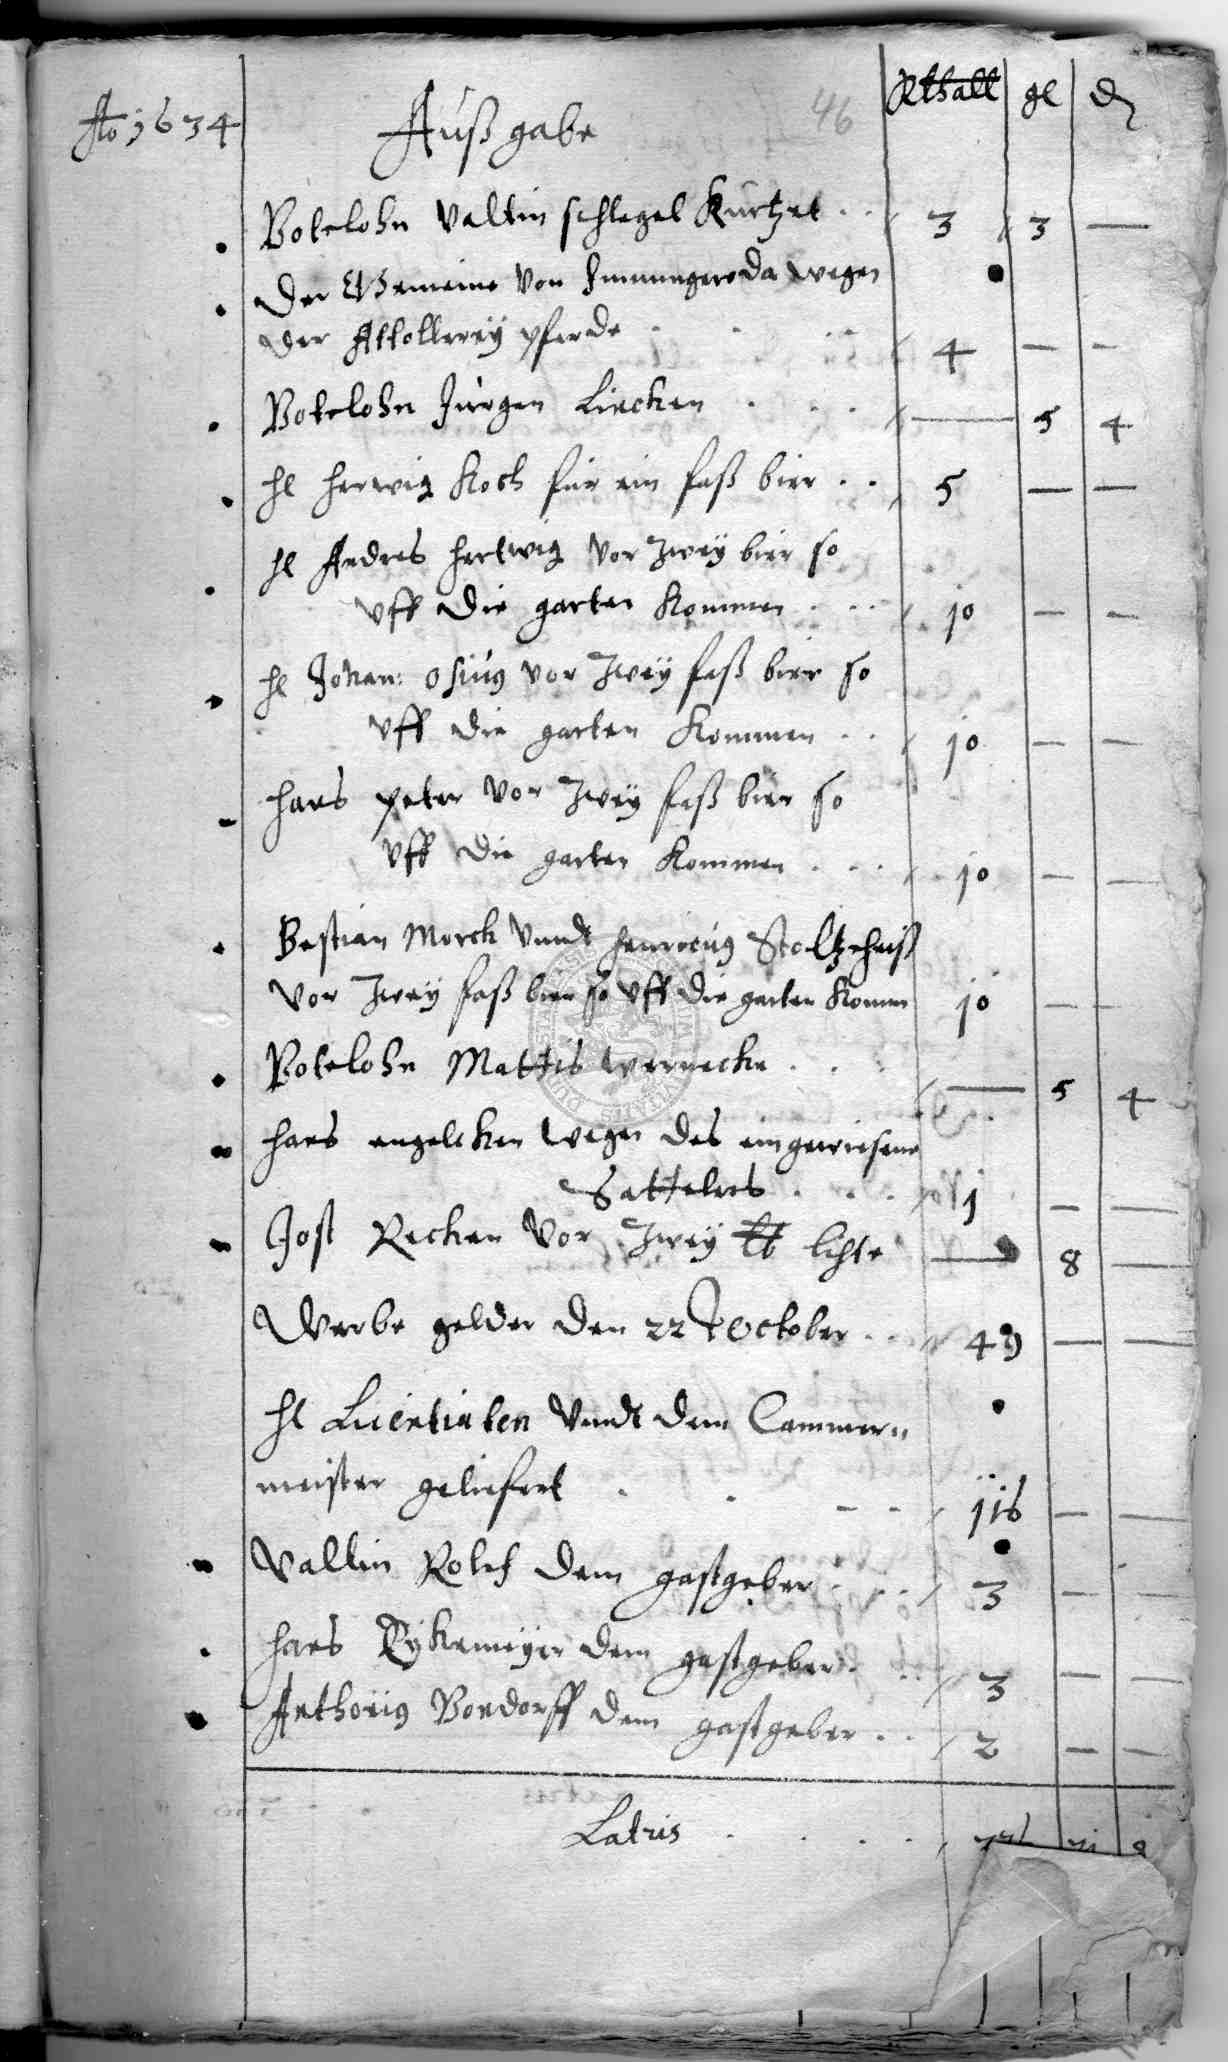 46 Rthall gl d
Ao 1634 Außgabe
Botelohn Valtin schlegel Kurtzet .. 3 3 —
Der Gemeine von Immingeroda wegen
der Attollerey pferde . . .. 4 — —
Botelohn Jurgen Liecken . . . — 5 4
hl herwig Koch fur ein faß bier .. 5 — —
hl Andres hertwig vor zwey bier so
vff die garten kommen . .. 10 — —
hl Johan: Osius vor zwey faß bier so
vff die garten kommen .. 10 — —
hans peter vor zwey faß bier so
vff die garten kommen . . . 10 — —
Bestian Morck vnndt henricus
vor zwey faß bier so vff die garten komen 10 — —
Botelohn Mattis wernecke . . . — 5 4
hans engelcken wegen des eingewiesene
Sattelers . . . 1 — —
Jost Recken vor zwey lb lichte — 8 —
Werbe gelder den 22 October .. 49 — —
hl Licentiaten vnndt dem Cammer=
meister geliefert . . - - 116 — —
Valtin Rolef dem gastgeber . . . 3 — —
hans dem gastgeber . .. 3 — —
Anthonius Bondorff dem gastgeber .. 2 — —
Latus . . . .